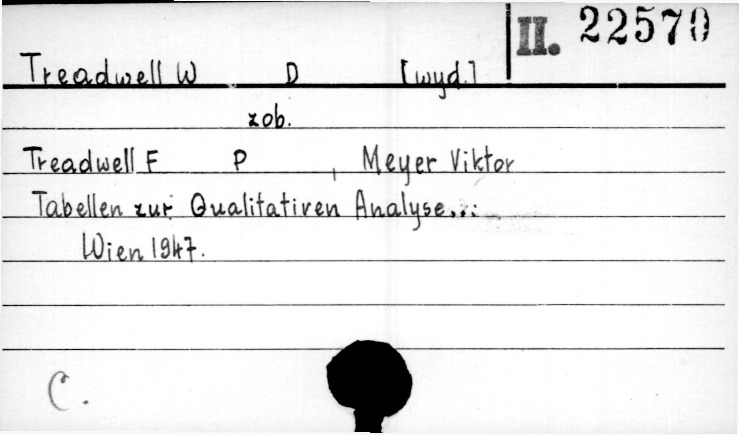 II. 22570
Treadwell W D [wyd.]
zob.
Treadwell F P , Meyer Viktor
Tabellen zur Qualitativen Analyse...
Wien 1947.
C.